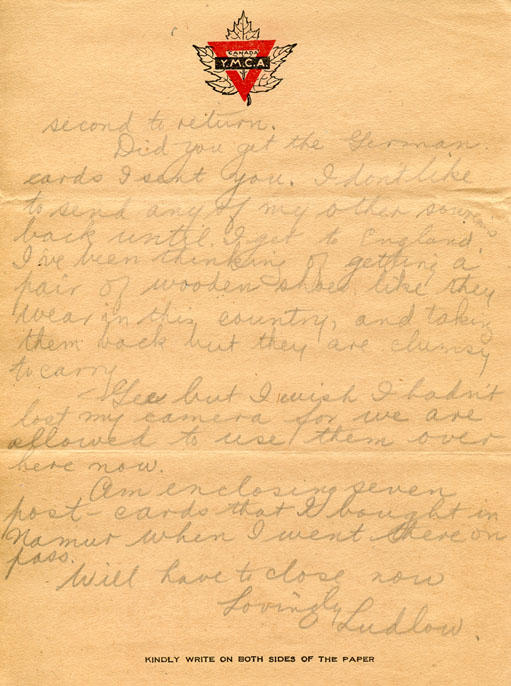 CANADA
Y.M.C.A.
second to return.
Did you get the German
cards I sent you. I don't like
to send any of my other
back until I get to England.
I've been thinking of getting a
pair of wooden shoes like they
wear in this country, and taking
them back but they are clumsy
to carry
Gee but I wish I hadn't
lost my camera for we are
allowed to use them over
here now.
Am enclosing seven
post-cards that I bought in
Namur when I went there on
pass.
Will have to close now
Lovingly
Ludlow.
KINDLY WRITE ON BOTH SIDES OF THE PAPER